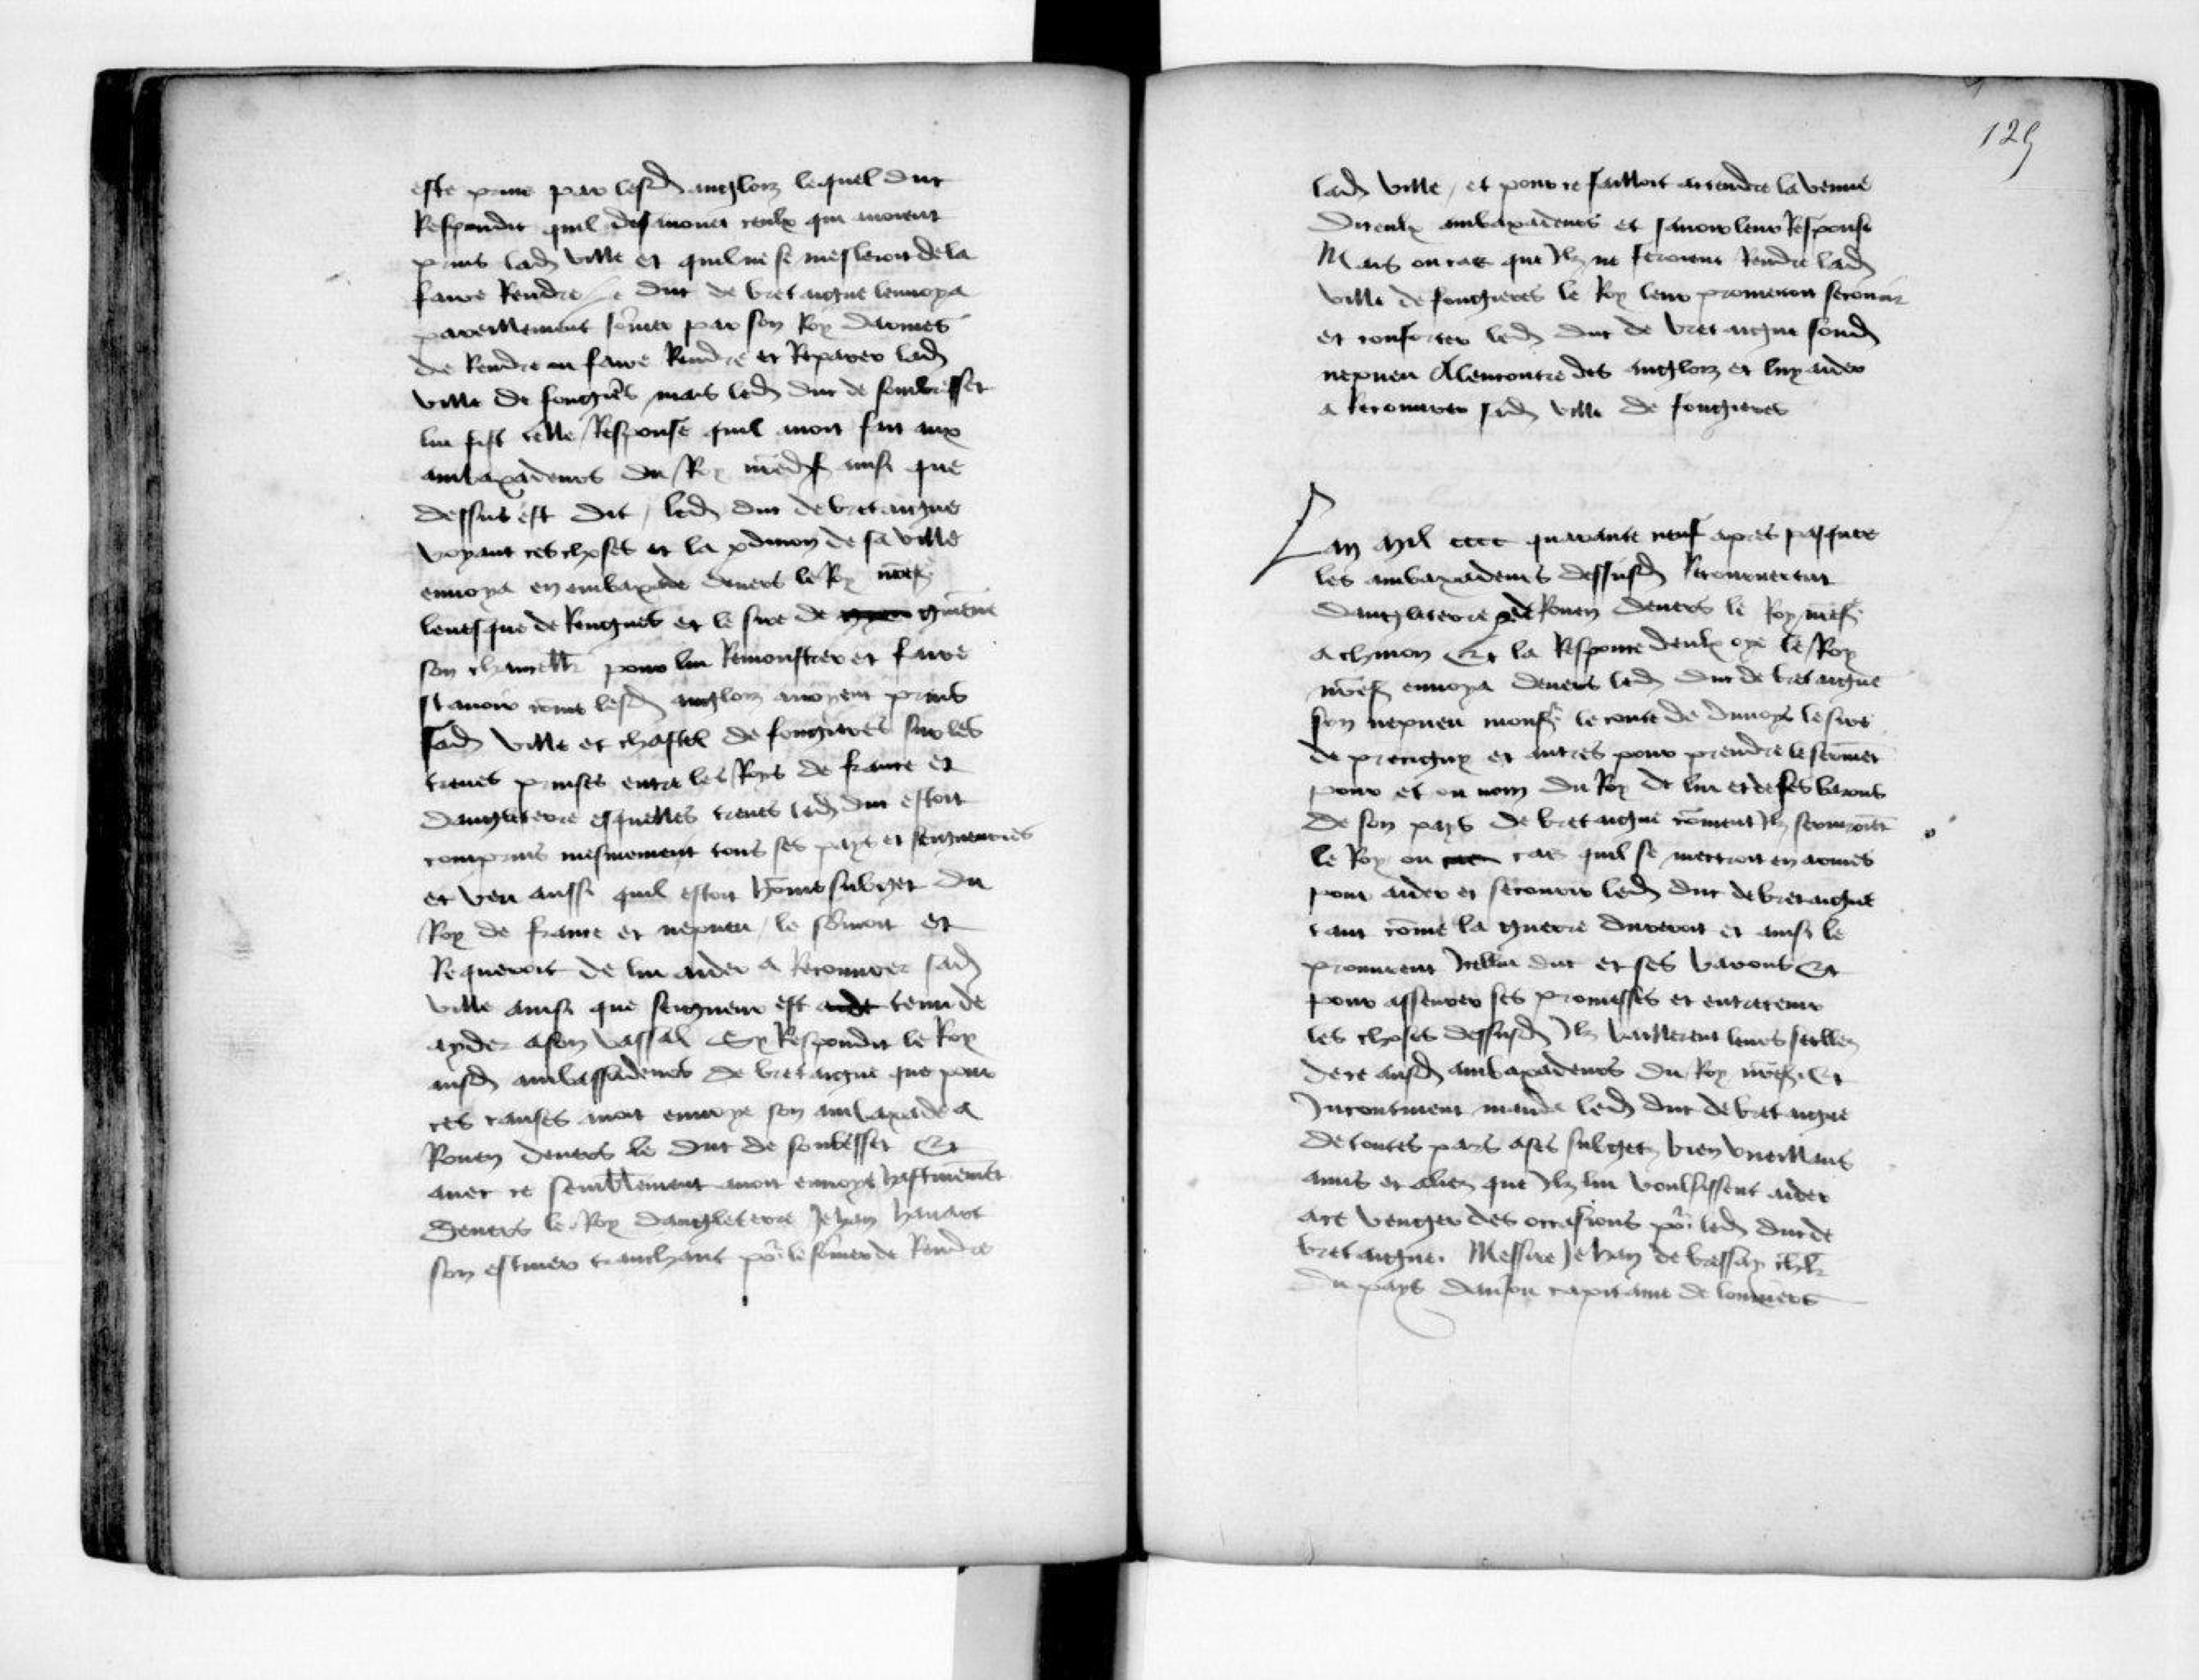 este prinse par lesd anglois lequel duc
Respondit quil desavouoit ceulx qui avoient
prins lad ville et quil ne se mesleroit de la
faire Rendre Le duc de bretaigne lenvoya
pareillement sommer par son Roy darmes
de Rendre ou faire Rendre et Reparer lad
ville de fougieres mais led duc de sombresset
lui fist telle Response quil avoit fait aux
ambaxadeurs du Roy ainsi que
dessus est dit / led duc de bretaigne
voyant ces choses et la de sa ville
envoya en embaxade devers le Roy
levesque de Rengnes et le sire de guemene
son chancellr pour lui Remonstrer et faire
scavoir come lesd anglois avoyent prins
sad ville et chastel de fougieres sur les
treves prinses entre les Roys de france et
dangleterre esquelles treves led duc estoit
comprins mesmement tous ses pays et seigneuries
et veu aussi quil estoit home subget du
Roy de france et nepveu / le somoit et
Requeroit de lui aider a Recouvrer sad
ville ainsi que seigneur est tenu de
ayder a son vassal Et Respondit le Roy
ausd ambassadeurs de bretaigne que pour
ces causes avoit envoye son ambaxade a
Rouen devers le duc de sombesset Et
avec ce semblement avoit envoye hastivement
devers le Roy dangleterre Jehan havart
son escuier tranchant pour le somer de Rendre
125
lad ville / et pour ce failloit attendre la venue
diceulx ambaxadeurs et scavoir leur Response
Mais ou cas que Ilz ne feroient Rendre lad
ville de fougieres le Roy leur promectoit secourir
et conforter led duc de bretaigne sond
nepveu Alencontre des anglois et luy aider
a Recouvrer sad ville de fougieres
Lan mil cccc quarante neuf apres pasques
les ambaxadeurs dessusd Retournerent
dangleterre et de Rouen devers le Roy
a chinon Et la Responce deulx oye le Roy
envoya devers led duc de bretaigne
son nepveu monsr le conte de dunoys le sire
de precigny et autres pour prendre le serment
pour et ou nom du Roy de lui et de ses barons
de son pays de bretaigne coment Ilz serviroient
le Roy ou cas quil se mectroit en armes
pour aider et secourir led duc de bretaigne
tant come la guerre dureroit et ainsi le
promirent Icellui duc et ses barons Et
pour asseurer ses promesses et entretenir
les choses dessusd Ilz baillerent leurs seellez
de ce ausd ambaxadeurs du Roy Et
Incontinent manda led duc de bretaigne
de toutes pars a ses subgetz bien vueillans
amis et aliez que Ilz lui voulsissent aider
a ce venger des occasions pour led duc de
bretaigne. Messire Jehan de bressay chlr
du pays danjou capitaine de louviers